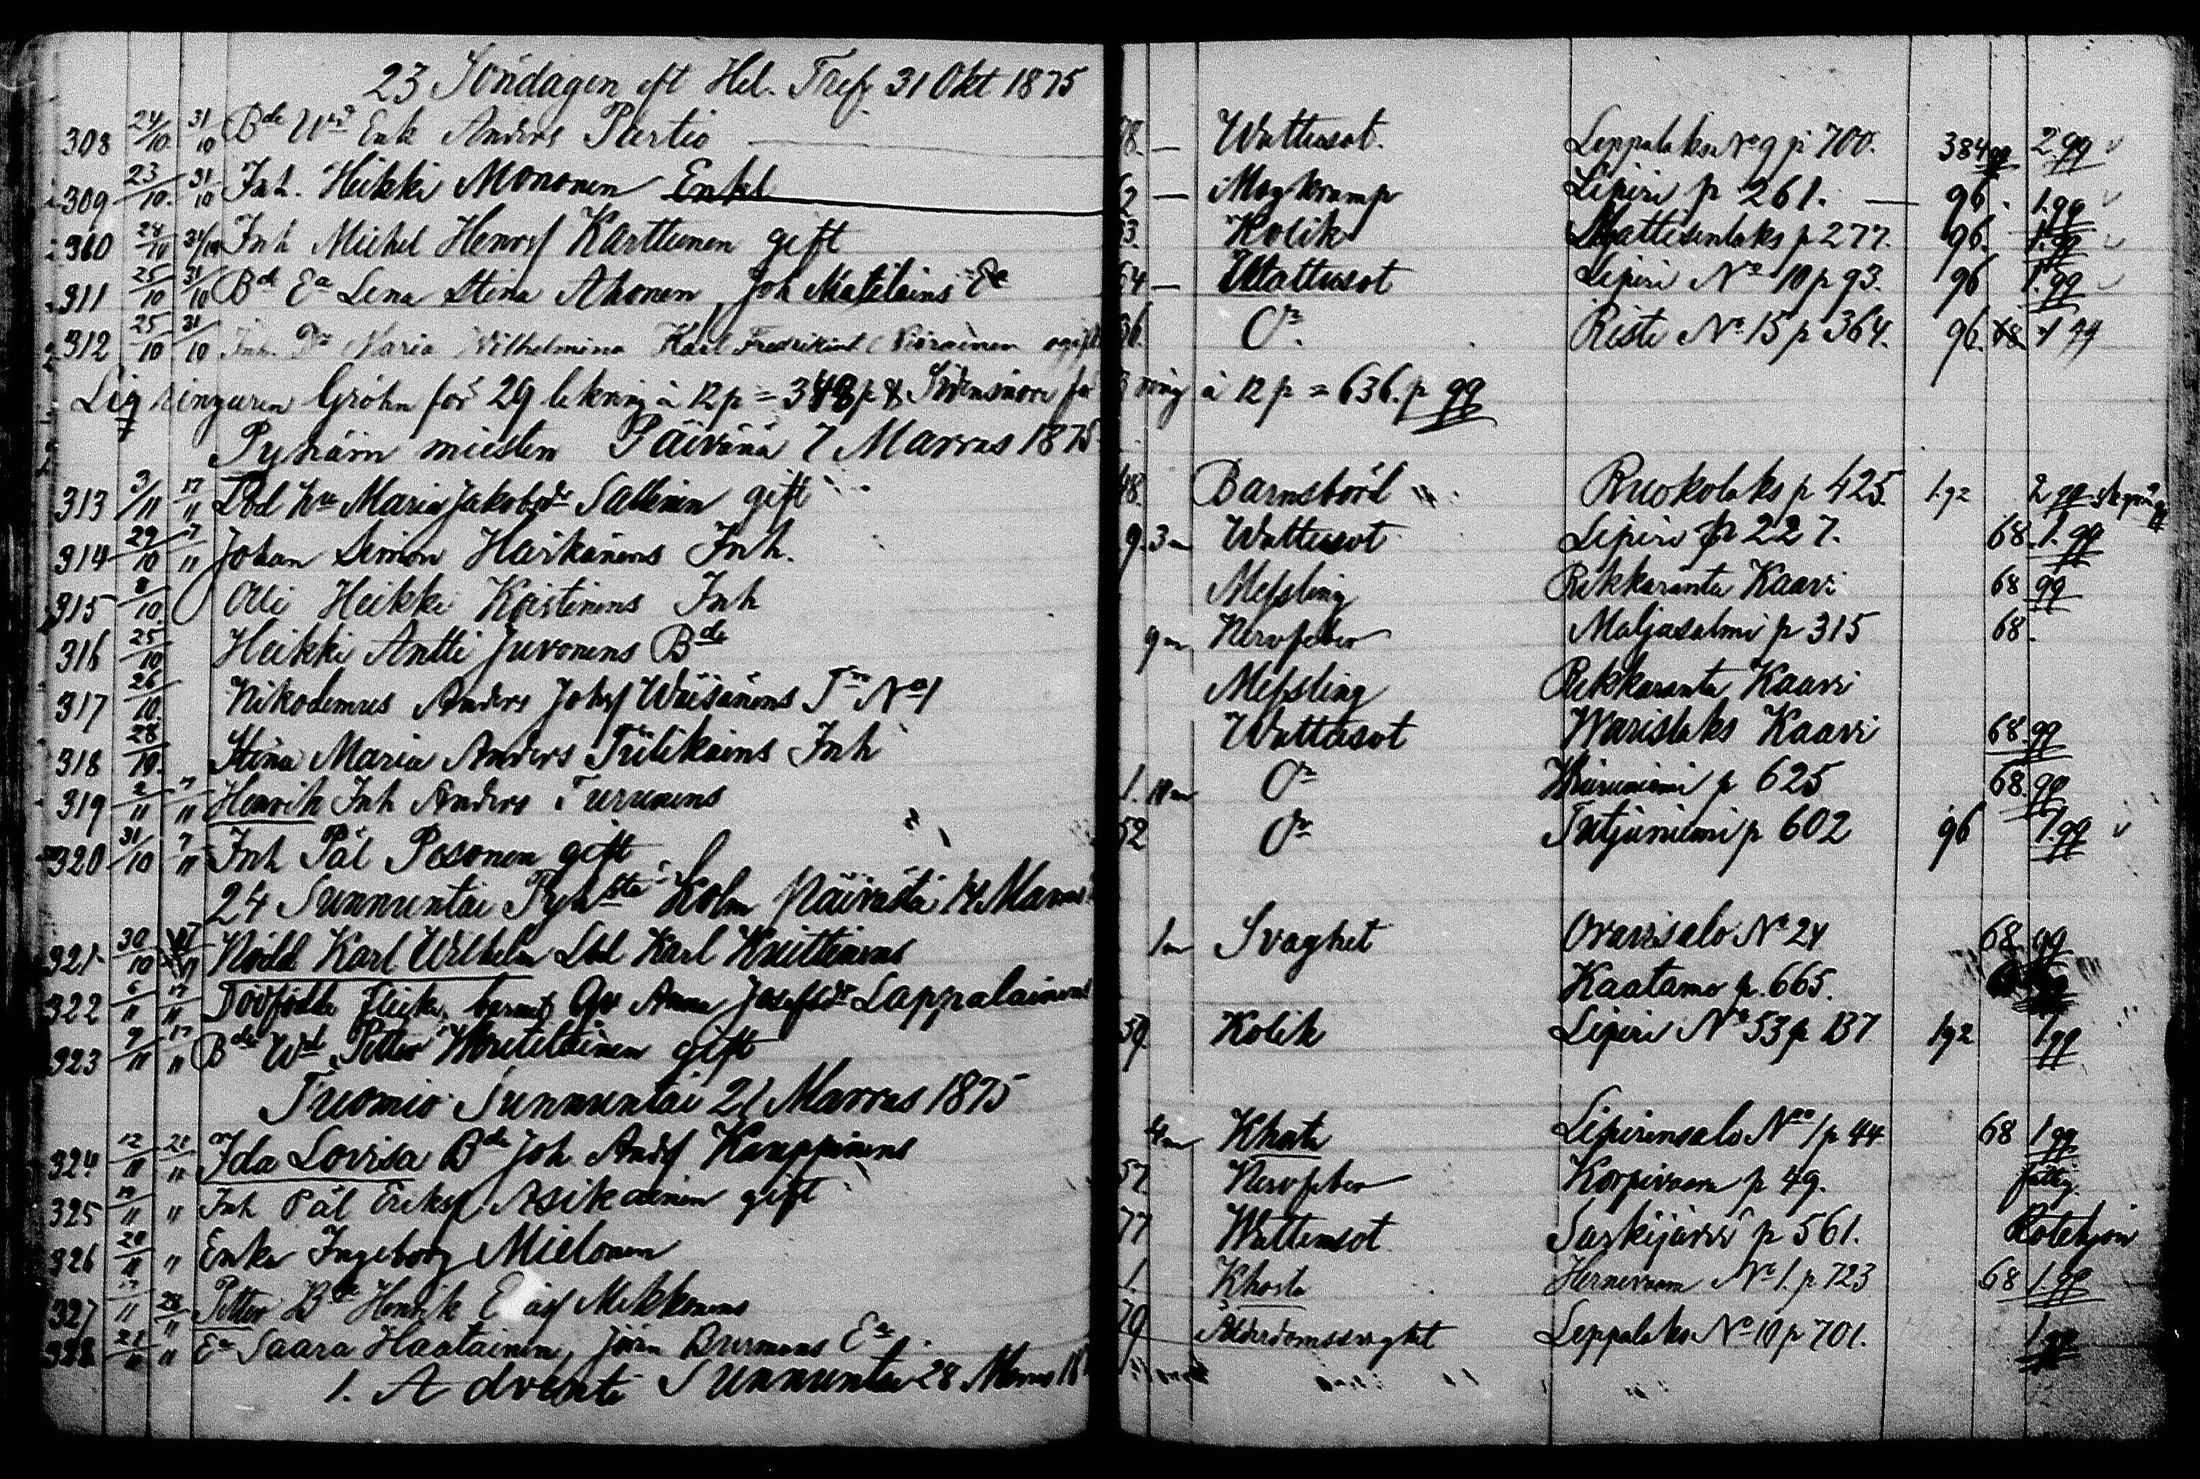 23 Söndagen eft Hel. Tref. 31 Okt 1875
308 24/10 31/10 Bde Enk Anders Partio 78. — Wattusot. Leppalaks No 9 p 700. 384 2
309 23/10. 31/10 Inh. Heikki Mononen Enkl 62 — Magkramp Lipiri p 261. — 96. 1.
310 24/10 31/10 Inh Michel Henrsf Karttunen gift 53. Kolik Mattisenlaks p 277. 96. 1.
311 25/10 31/10 Bd Ea Lena Stina Ahonen, Joh Matilains Ea 64 — Wattusot Lipiri No 10 p 93. 96 1.
312 25/10 31/10 Inh. Maria Wilhelmina Karl Fredrikint Piirainen ogift 36. Do Riste No 15 p 364. 96. 68 1
ringaren Gröhn för 29 lekning à 12 p = 348 p & för 53 ring à 12 p = 636. p
Pyhäin miesten Päivänä 7 Marras 1875
313 3/11 17/11 Lbd Hu Maria Jakobsdr Sallinen gift 48. Barnsbörd Ruokolaks p 425. 192 2
314 29/10 7/11 Johan Simon Härkänens Inh. 9. 3 m Wattusot Lipiri p 227. 68. 1.
315 8/10. Olli Heikki Kastinens Inh Messling Rikkaranta Kaavi 68
316 25/10 Heikki Antti Juvonens Bde 9 m Nervfeber Maljasalmi p 315 68.
317 26/10. Nikodemus Anders Johsf Wäisänens No 1 Messling Rikkaranta Kaavi
318 28/10. Stina Maria Anders Tiilikains Inh Wattusot Warislaks Kaavi 68
319 2/11 7/11 Henrik Inh Anders Turunens 1. 11 m Do p 625 68.
320 31/10 7/11 Inh Pål Pesonen gift 52 Do Tutjuniemi p 602 96 1.
24 Sunnuntai Pyhstä Kolm Päivästä 14 Marras
321 30/10 Nödd Karl Wilhelm Lbd Karl Knuttinens 1 m Svaghet Ovavisalo No 24 68
322 6/11 17/11 Dödfödda flicke barnet Qv Anna Josefsdr Lappalainens Kaatamo p. 665.
323 9/11 17/11 Bde Petter Miettiläinen gift 59. Kolik Lipiri No 53 p 137 192 1
Tuomio Sunnuntai 21 Marras 1875
324 12/11 21/11 Ida Lovisa Bde Joh. Andsf Kauppinens 4 m Khosta Lipirinsalo No 1 p 44 68 1
325 19/11 " Inh Pål Eriksf Asikainen gift 57. Nervfeber Korpivaara p 49. fattig.
326 20/11 " Enka Ingeborg Mielonen 77 Wattusot Särkijärvi p 561. Rotehjon
327 17/11 28/11 Petter Bde Henrik Eliasf Mikkonens 1. Khosta Hernevaara No 1. p 723 68 1.
328 21/11 " Ea Saara Haatainen, Jöran Burmans Ea 79 Ålderdomssvaghet Leppalaks No 10 p 701. 1
1. Adventi Sunnuntai 28 Marras 18